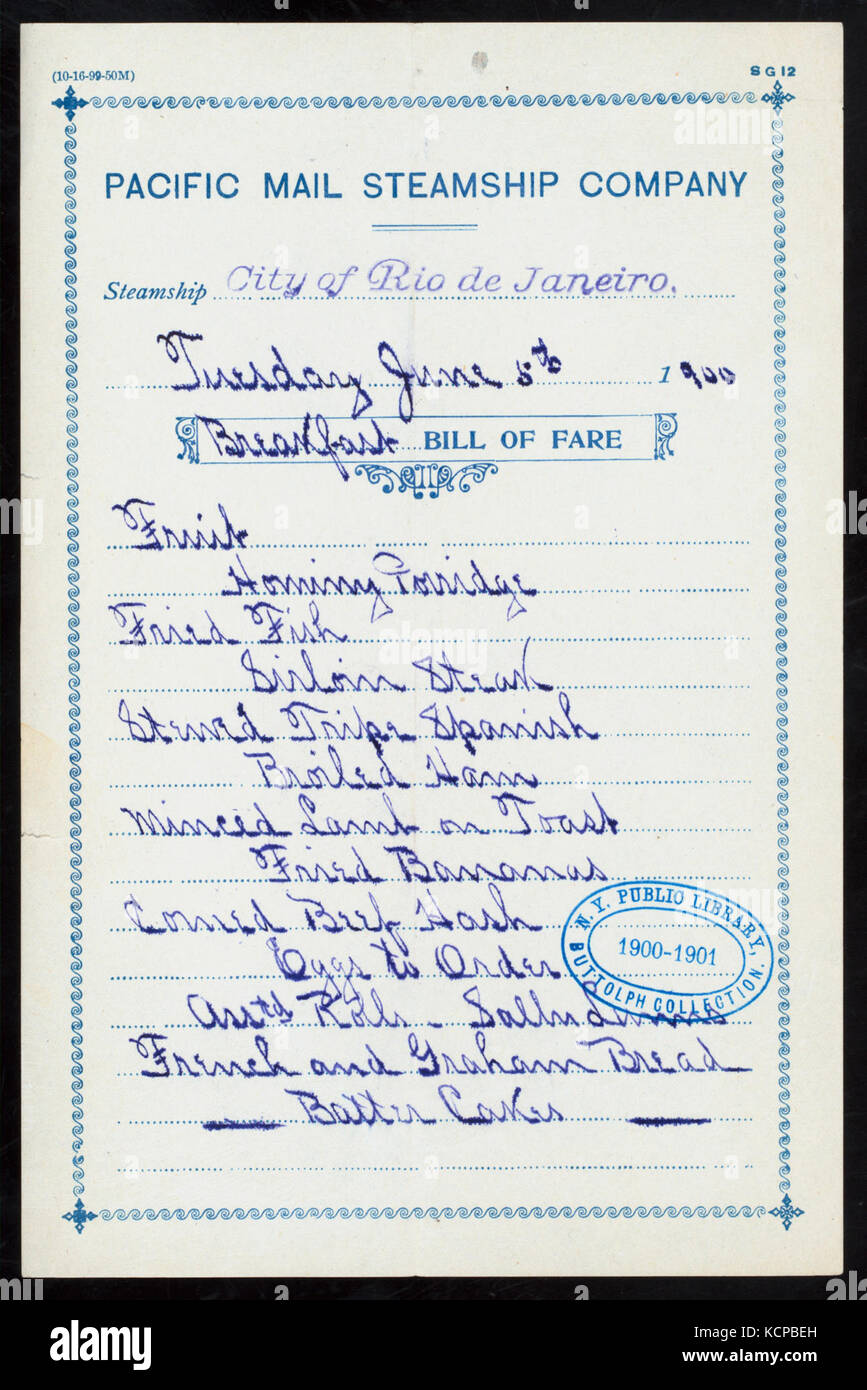 (10-16-99-50M) SG12
PACIFIC MAIL STEAMSHIP COMPANY
Steamship City of Rio de Janeiro.
Tuesday June 5th 1900
Breakfast BILL OF FARE
Fruit
Hominy Porridge
Fried Fish
Sirloin Steak
Stewed Tripe Spanish
Broiled Ham
Minced Lamb on Toast
Fried Bananas
Corned Beef Hash
N.Y. PUBLIC LIBRARY,
1900-1901
BUTTOLPH COLLECTION.
Eggs to Order
Asstd Rolls - 
French and Graham Bread
Batter Cakes
alamy
Image ID: KCPBEH
www.alamy.com